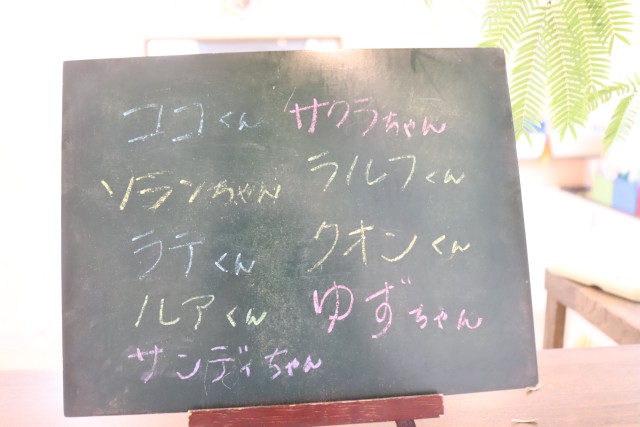 ココくん サクラちゃん
ソランちゃん ラルフくん
ラテくん クオンくん
ルアくん ゆずちゃん
サンディちゃん